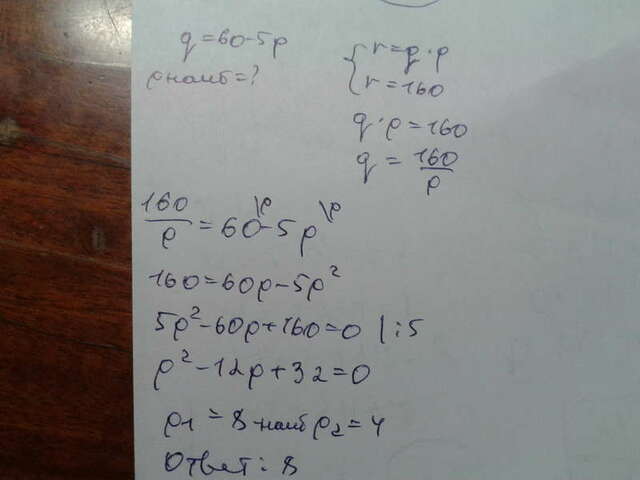 q=60-5p
pнаиб=?
{r=q·p
r=160
q·p=160
q=160/p
160/p=60\p-5p\p
160=60p-5p²
5p²-60p+160=0 |:5
p²-12p+32=0
p₁=8-наиб p₂=4
Ответ: 8